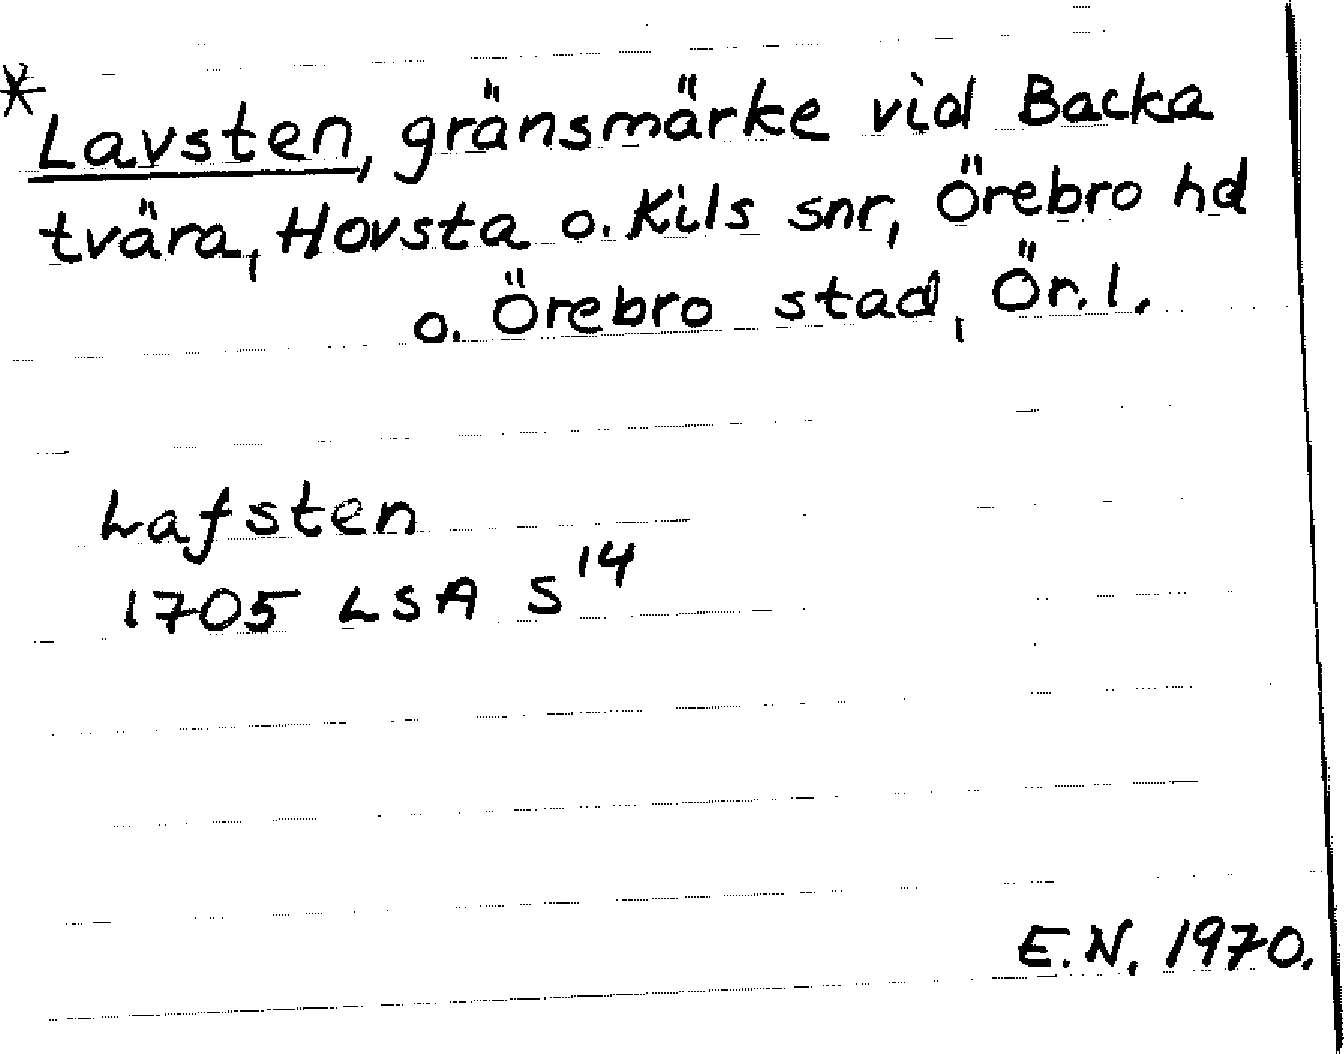 *Lavsten, gränsmärke vid Backa
tvära, Hovsta o. Kils snr, Örebro hd
o. Örebro stad, Ör. l.
Lafsten
1705 LSA S¹⁴
E.N. 1970.